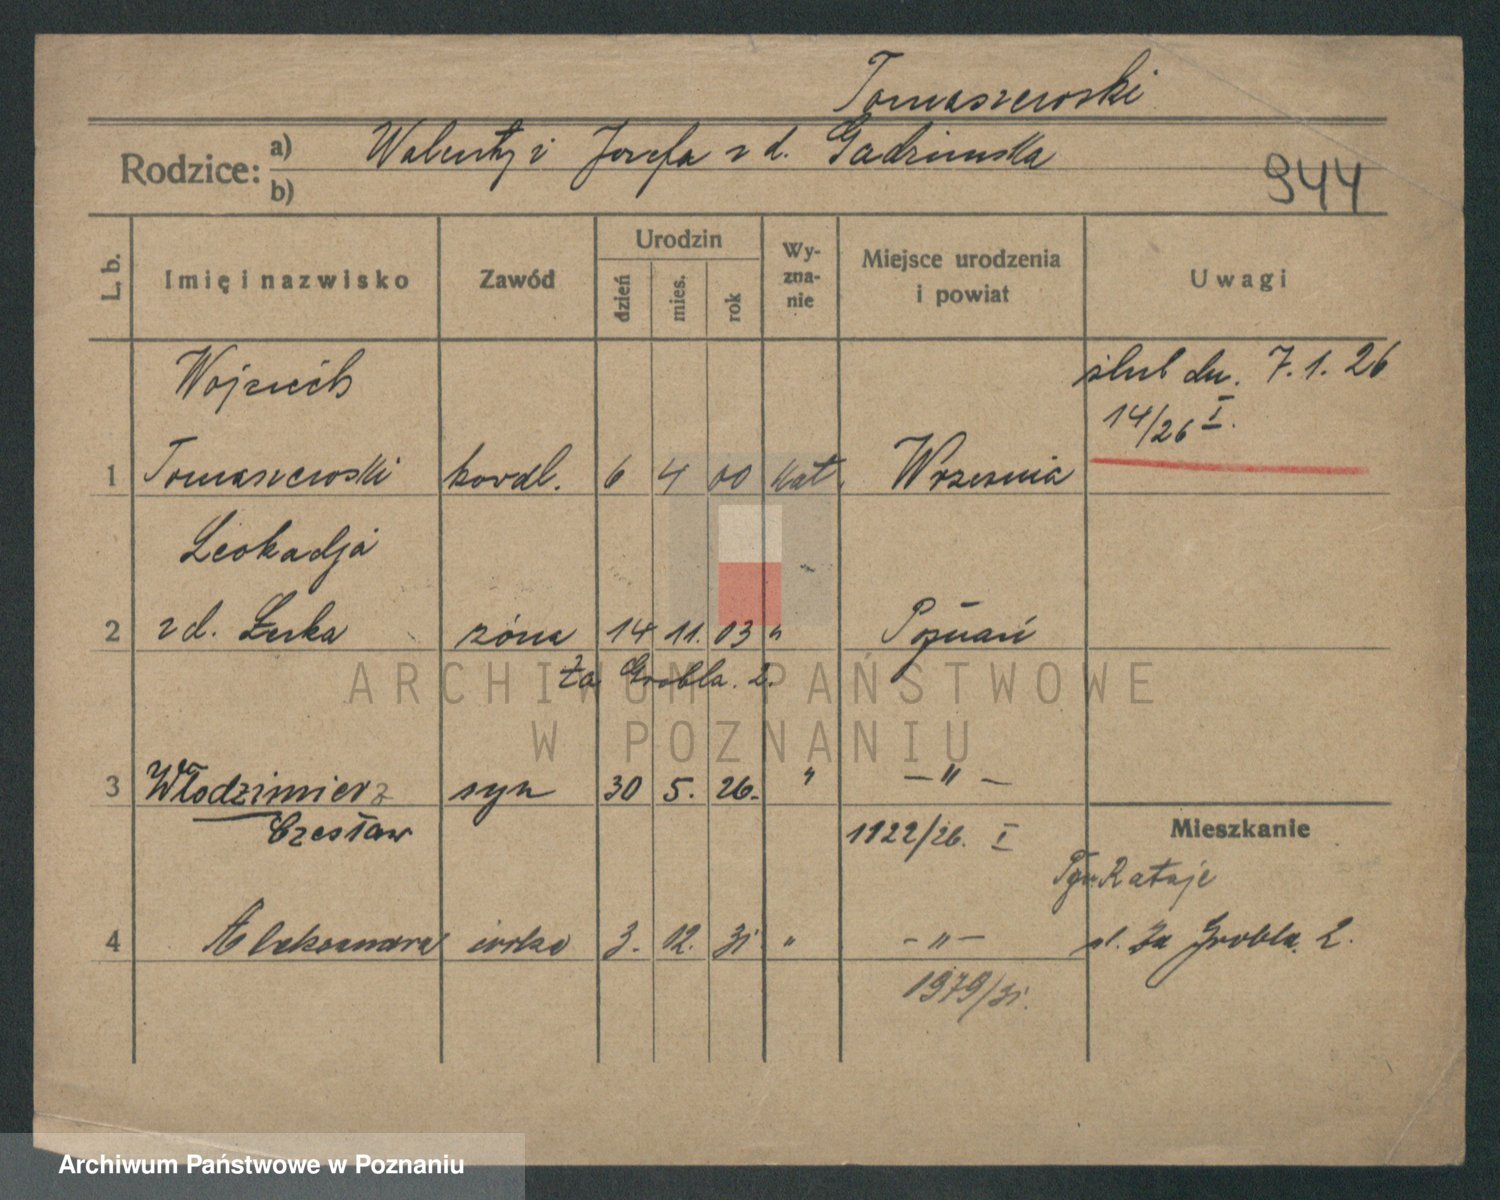 Tomaszewski
Rodzice: a) Walenty i Józefa z d. Gadzińska
b)
944
L. b. Imię i nazwisko Zawód Urodzin dzień mies. rok Wy-zna-nie Miejsce urodzenia i powiat Uwagi
Wojciech ślub dn. 7.1.26
14/26 I.
1 Tomaszewski kowal. 6 4 00 kat. Września
Leokadja
2 z d. Żurka żona 14 11. 03 " Poznań
Za Groblą. 2.
ARCHIWUM PAŃSTWOWE
W POZNANIU
3 Włodzimierz syn 30 5. 26. " - " -
Czesław 1122/26. I Mieszkanie
Rataje
4 Aleksandra córka 3. 12. 31 " - " - ul. Za Groblą. 2.
1979/31.
Archiwum Państwowe w Poznaniu